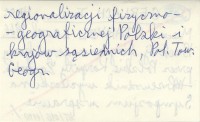 regionalizacji fizyczno-
-geograficznej Polski i
krajów sąsiednich, Pol. Tow.
Geogr.